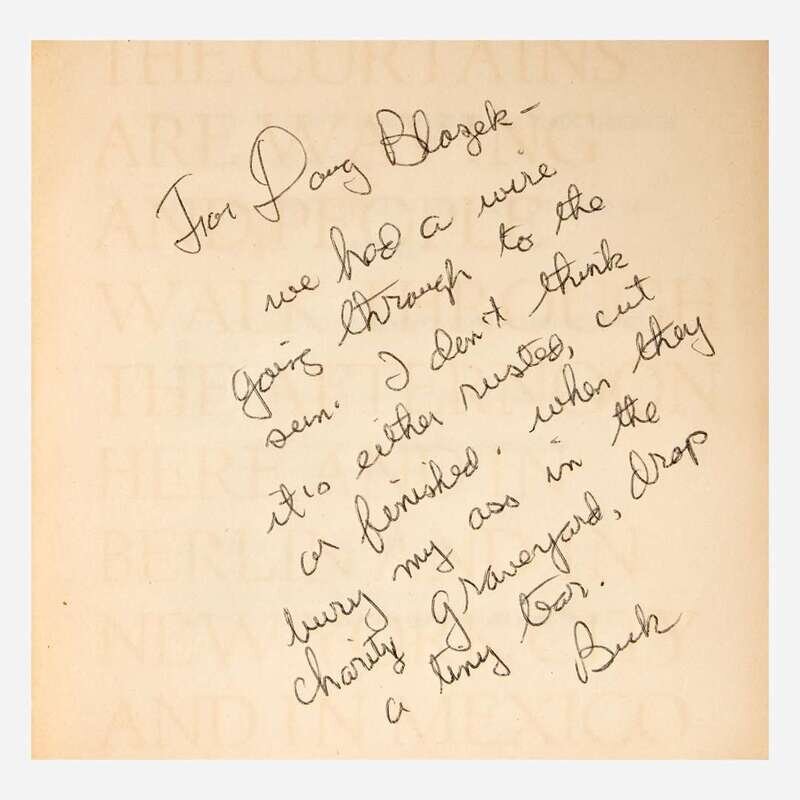 For Doug Blazek –
we had a wire
going through to the
sun. I don't think
it's either rusted, cut
or finished. when they
bury my ass in the
charity graveyard, drop
a tiny tear.
Buk
THE CURTAINS
ARE WAVING
AND PEOPLE
WALK THROUGH
THE AFTERNOON
HERE AND IN
BERLIN AND IN
NEW YORK CITY
AND IN MEXICO